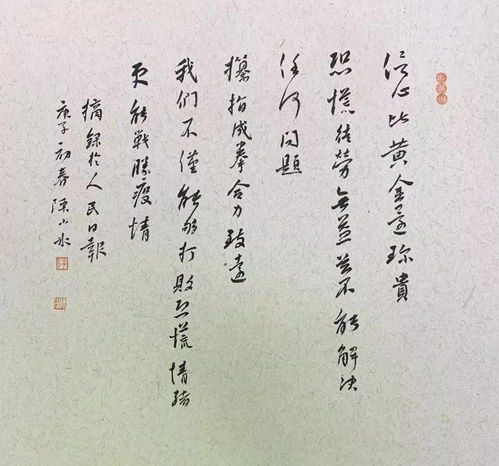 信心比黃金還珍貴
恐慌徒勞無益並不能解決
任何問題
攥指成拳合力致遠
我們不僅能夠打敗恐慌情緒
更能戰勝疫情
摘錄於人民日報
庚子初春陳小水